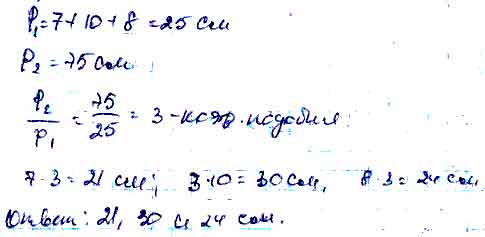 P₁=7+10+8=25 см
P₂=75 см
P₂/P₁ = 75/25 = 3 - коэф. подобия.
7·3=21 см; 3·10=30 см, 8·3=24 см
Ответ: 21, 30 и 24 см.